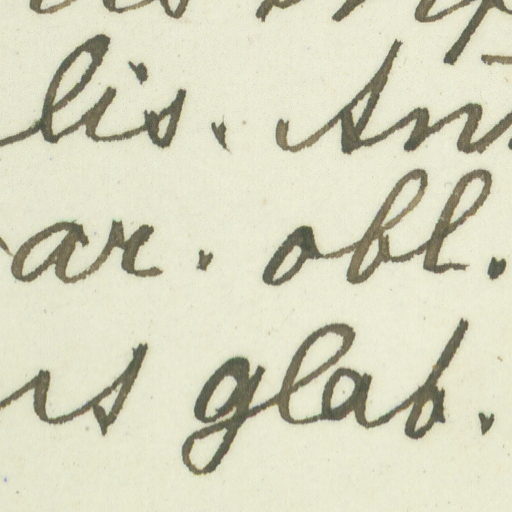 lis. An
ar. obl.
is glab.